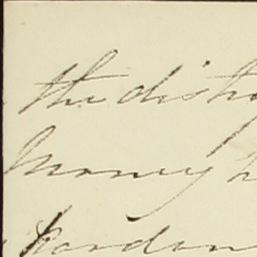 the distr
Money h
Jordan